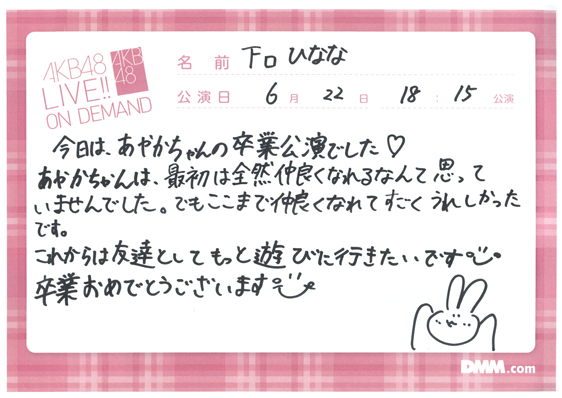 AKB48
LIVE!!
ON DEMAND
AKB
48
名前 下口ひなな
公演日 6月22日 18:15公演
今日は、あやかちゃんの卒業公演でした♡
あやかちゃんは、最初は全然仲良くなれるなんて思って
いませんでした。でもここまで仲良くなれてすごくうれしかった
です。
これからは友達としてもっと遊びに行きたいです
卒業おめでとうございます
DMM.com